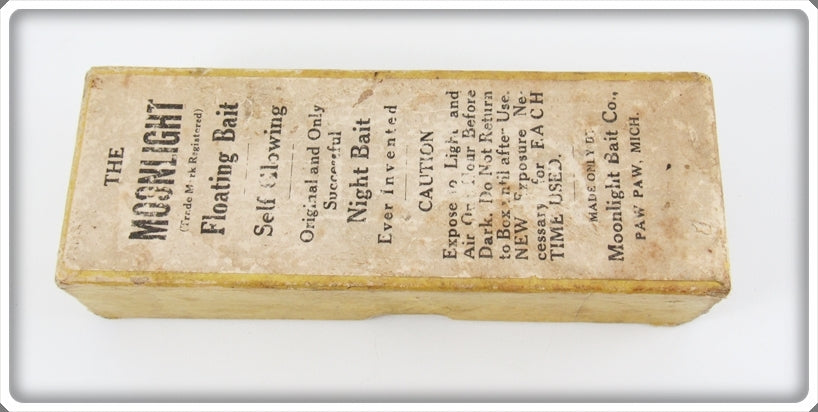 THE
MOONLIGHT
(Trade Mark Registered)
Floating Bait
Self Glowing
Original and Only
Successful
Night Bait
Ever Invented
CAUTION
Expose to Light and
Air One Hour Before
Dark. Do Not Return
to Box until after Use.
NEW Exposure Ne-
cessary for EACH
TIME USED.
MADE ONLY BY
Moonlight Bait Co.,
PAW PAW, MICH.